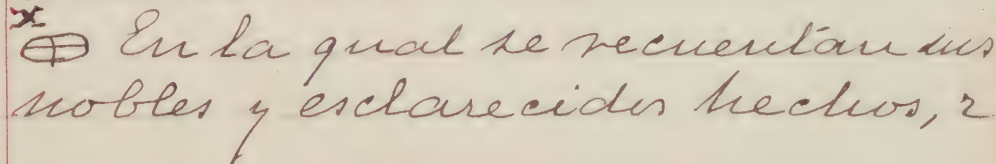 x
⊕ En la qual se recuentan sus
nobles y esclarecidos hechos, r